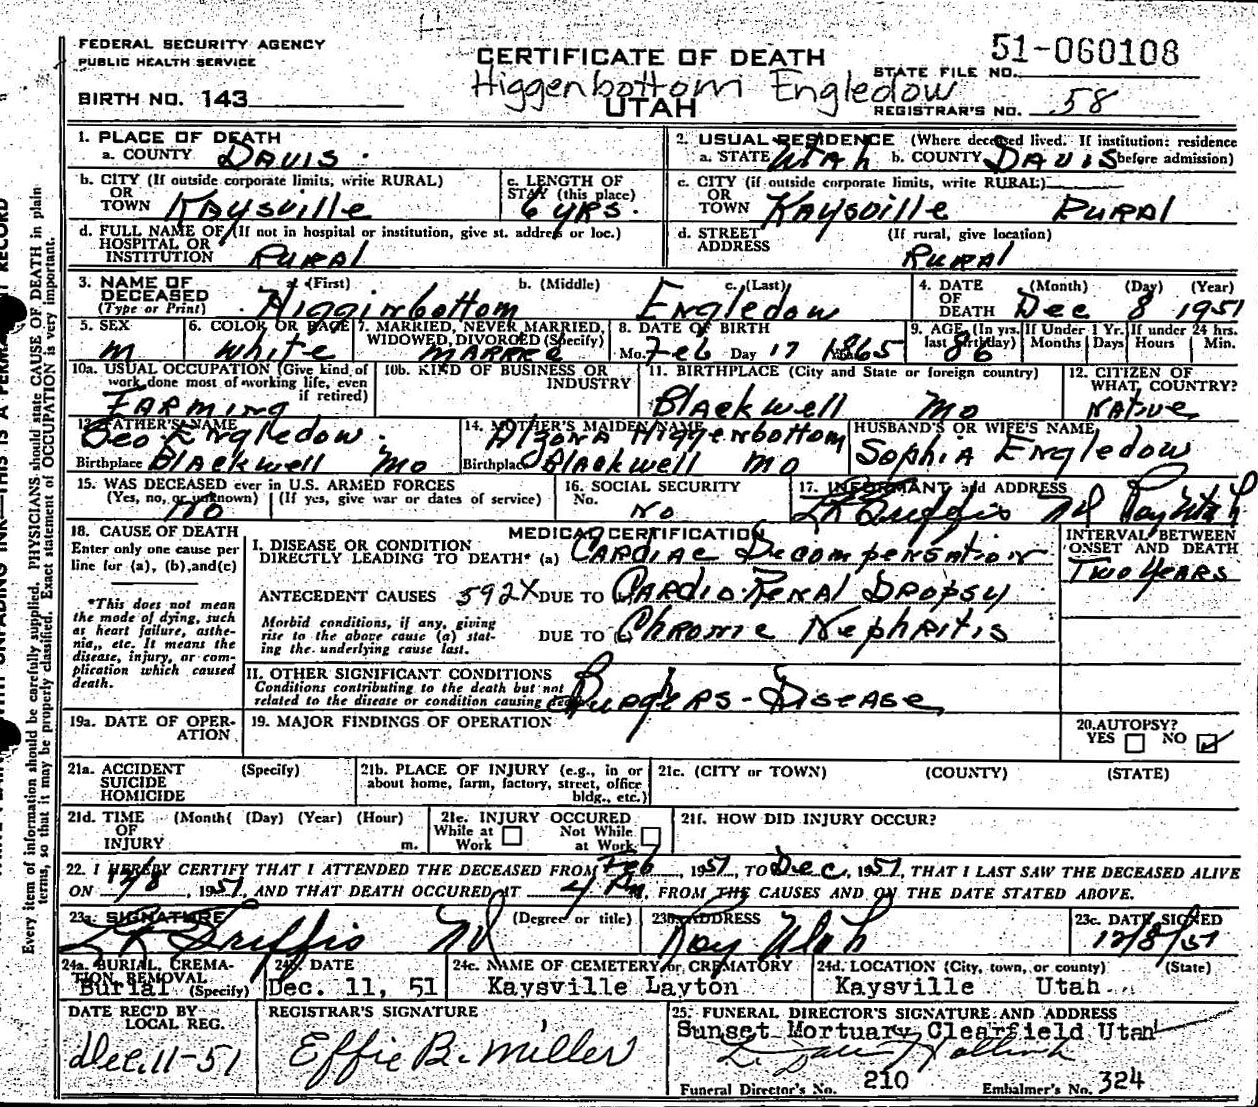 FEDERAL SECURITY AGENCY
PUBLIC HEALTH SERVICE
BIRTH NO. 143
CERTIFICATE OF DEATH
Higgenbottom Engledow
UTAH
51-060108
STATE FILE NO.
REGISTRAR'S NO. 58
1. PLACE OF DEATH
a. COUNTY Davis
2. USUAL RESIDENCE (Where deceased lived. If institution: residence
a. STATE Utah b. COUNTY Davis before admission)
b. CITY (If outside corporate limits, write RURAL)
OR
TOWN Kaysville
c. LENGTH OF
STAY (this place)
6 yrs.
c. CITY (if outside corporate limits, write RURAL)
OR
TOWN Kaysville Rural
d. FULL NAME OF (If not in hospital or institution, give st. address or loc.)
HOSPITAL OR
INSTITUTION Rural
d. STREET (If rural, give location)
ADDRESS Rural
3. NAME OF DECEASED
(Type or Print)
a. (First) b. (Middle) c. (Last)
Higginbottom Engledow
4. DATE OF DEATH (Month) (Day) (Year)
Dec 8 1951
5. SEX
m
6. COLOR OR RACE
white
7. MARRIED, NEVER MARRIED,
WIDOWED, DIVORCED (Specify)
8. DATE OF BIRTH
Mo. Feb Day 17 1865
9. AGE (In yrs. last birthday)
86
If Under 1 Yr. Months Days
If under 24 hrs. Hours Min.
10a. USUAL OCCUPATION (Give kind of
work done most of working life, even
if retired)
Farming
10b. KIND OF BUSINESS OR
INDUSTRY
11. BIRTHPLACE (City and State or foreign country)
Blackwell Mo
12. CITIZEN OF
WHAT COUNTRY?
Native
13. FATHER'S NAME
Geo Engledow
Birthplace Blackwell Mo
14. MOTHER'S MAIDEN NAME
Alzona Higgenbottom
Birthplace Blackwell Mo
HUSBAND'S OR WIFE'S NAME
Sophia Engledow
15. WAS DECEASED ever in U.S. ARMED FORCES
(Yes, no, or unknown) (If yes, give war or dates of service)
No
16. SOCIAL SECURITY
No.
No
17. INFORMANT and ADDRESS
Roy Utah
18. CAUSE OF DEATH
Enter only one cause per
line for (a), (b), and (c)
*This does not mean
the mode of dying, such
as heart failure, asthe-
nia, etc. It means the
disease, injury, or com-
plication which caused
death.
MEDICAL CERTIFICATION
I. DISEASE OR CONDITION
DIRECTLY LEADING TO DEATH* (a) Cardiac Decompensation
ANTECEDENT CAUSES 592X DUE TO Cardio-Renal Dropsy
Morbid conditions, if any, giving
rise to the above cause (a) stat-
ing the underlying cause last.
DUE TO Chronic Nephritis
INTERVAL BETWEEN
ONSET AND DEATH
Two Years
II. OTHER SIGNIFICANT CONDITIONS
Conditions contributing to the death but not
related to the disease or condition causing death
Burgers-Disease
19a. DATE OF OPER-
ATION
19. MAJOR FINDINGS OF OPERATION
20. AUTOPSY?
YES NO
21a. ACCIDENT (Specify)
SUICIDE
HOMICIDE
21b. PLACE OF INJURY (e.g., in or
about home, farm, factory, street, office
bldg., etc.)
21c. (CITY or TOWN) (COUNTY) (STATE)
21d. TIME (Month) (Day) (Year) (Hour)
OF
INJURY m.
21e. INJURY OCCURED
While at Work Not While at Work
21f. HOW DID INJURY OCCUR?
22. I HEREBY CERTIFY THAT I ATTENDED THE DECEASED FROM Feb, 1951, TO Dec, 1951, THAT I LAST SAW THE DECEASED ALIVE
ON 12/8, 1951, AND THAT DEATH OCCURED AT 4 Pm, FROM THE CAUSES AND ON THE DATE STATED ABOVE.
23a. SIGNATURE (Degree or title)
23b. ADDRESS
Roy Utah
23c. DATE SIGNED
12/8/51
24a. BURIAL, CREMA-
TION REMOVAL
Burial (Specify)
24b. DATE
Dec. 11, 51
24c. NAME OF CEMETERY or CREMATORY
Kaysville Layton
24d. LOCATION (City, town, or county) (State)
Kaysville Utah
DATE REC'D BY
LOCAL REG.
Dec. 11-51
REGISTRAR'S SIGNATURE
Effie B. Miller
25. FUNERAL DIRECTOR'S SIGNATURE AND ADDRESS
Sunset Mortuary Clearfield Utah
Funeral Director's No. 210 Embalmer's No. 324
Every item of information should be carefully supplied. PHYSICIANS should state CAUSE OF DEATH in plain
terms, so that it may be properly classified. Exact statement of OCCUPATION is very important.